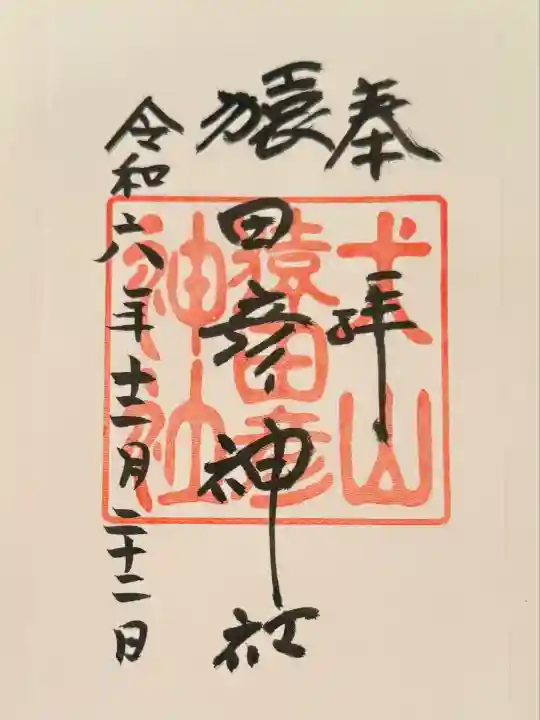 奉拝
猿田彦神社
令和六年十二月二十二日
犬山
猿田彦
神社